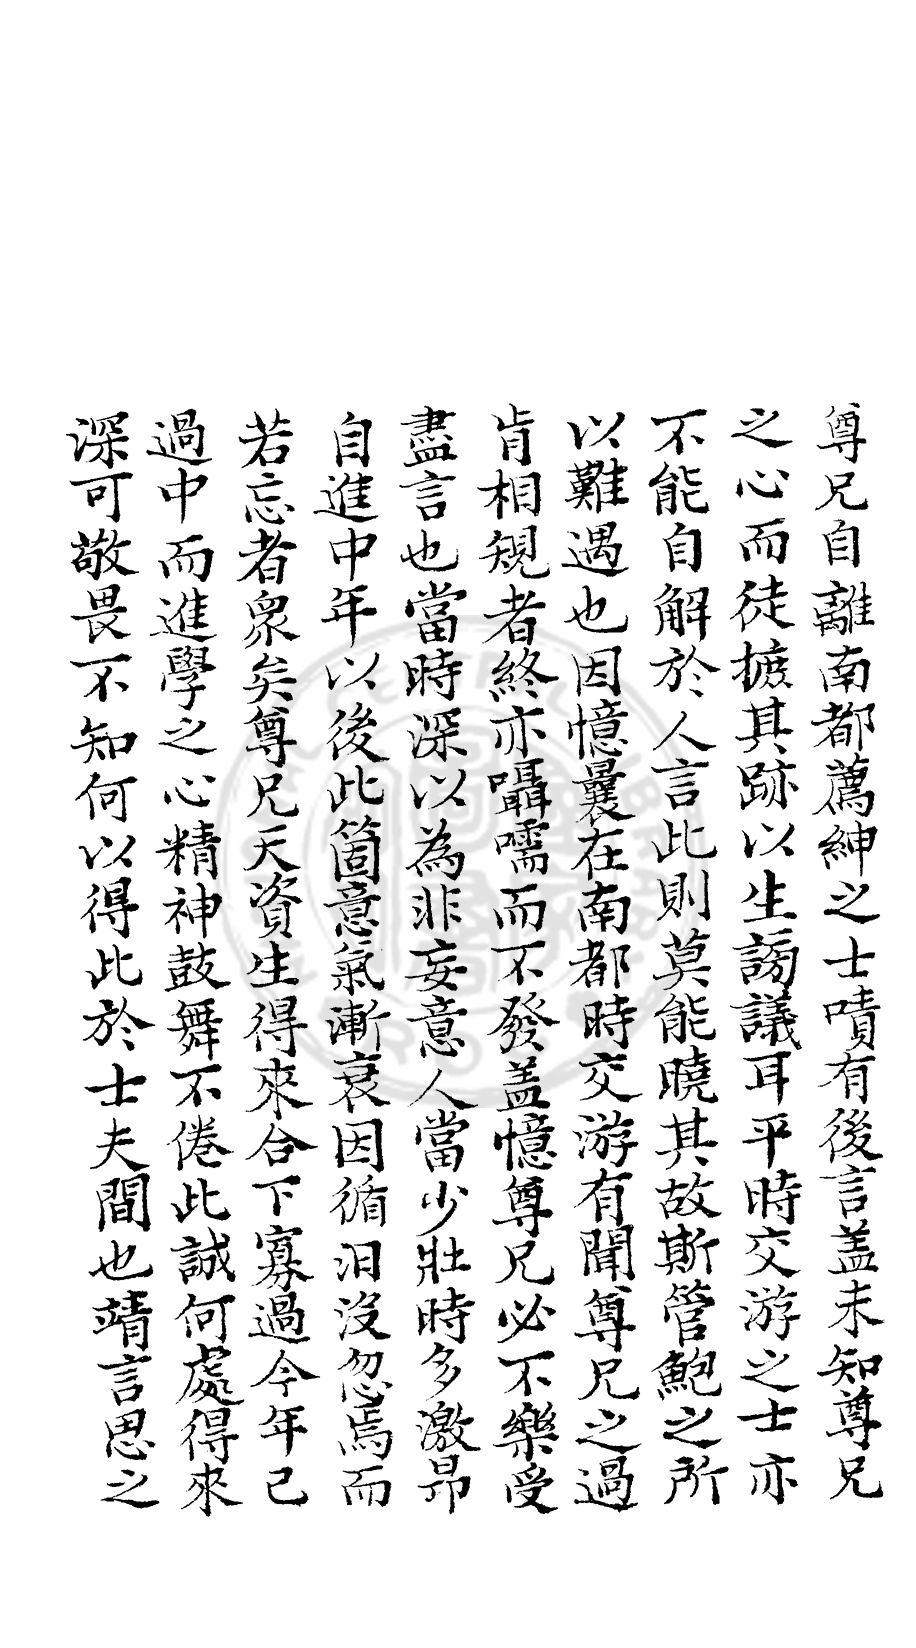 尊兄自離南都薦紳之士嘖有後言盖未知尊兄
之心而徒摭其跡以生謗議耳平時交游之士亦
不能自解於人言此則莫能曉其故斯管鮑之所
以難遇也因憶曩在南都時交游有聞尊兄之過
肯相規者終亦囁嚅而不發盖憶尊兄必不樂受
盡言也當時深以為非妄意人當少壯時多激昂
自進中年以後此箇意氣漸衰因循汨沒忽焉而
若忘者衆矣尊兄天資生得來合下寡過今年已
過中而進學之心精神鼓舞不倦此誠何處得來
深可敬畏不知何以得此於士夫間也靖言思之